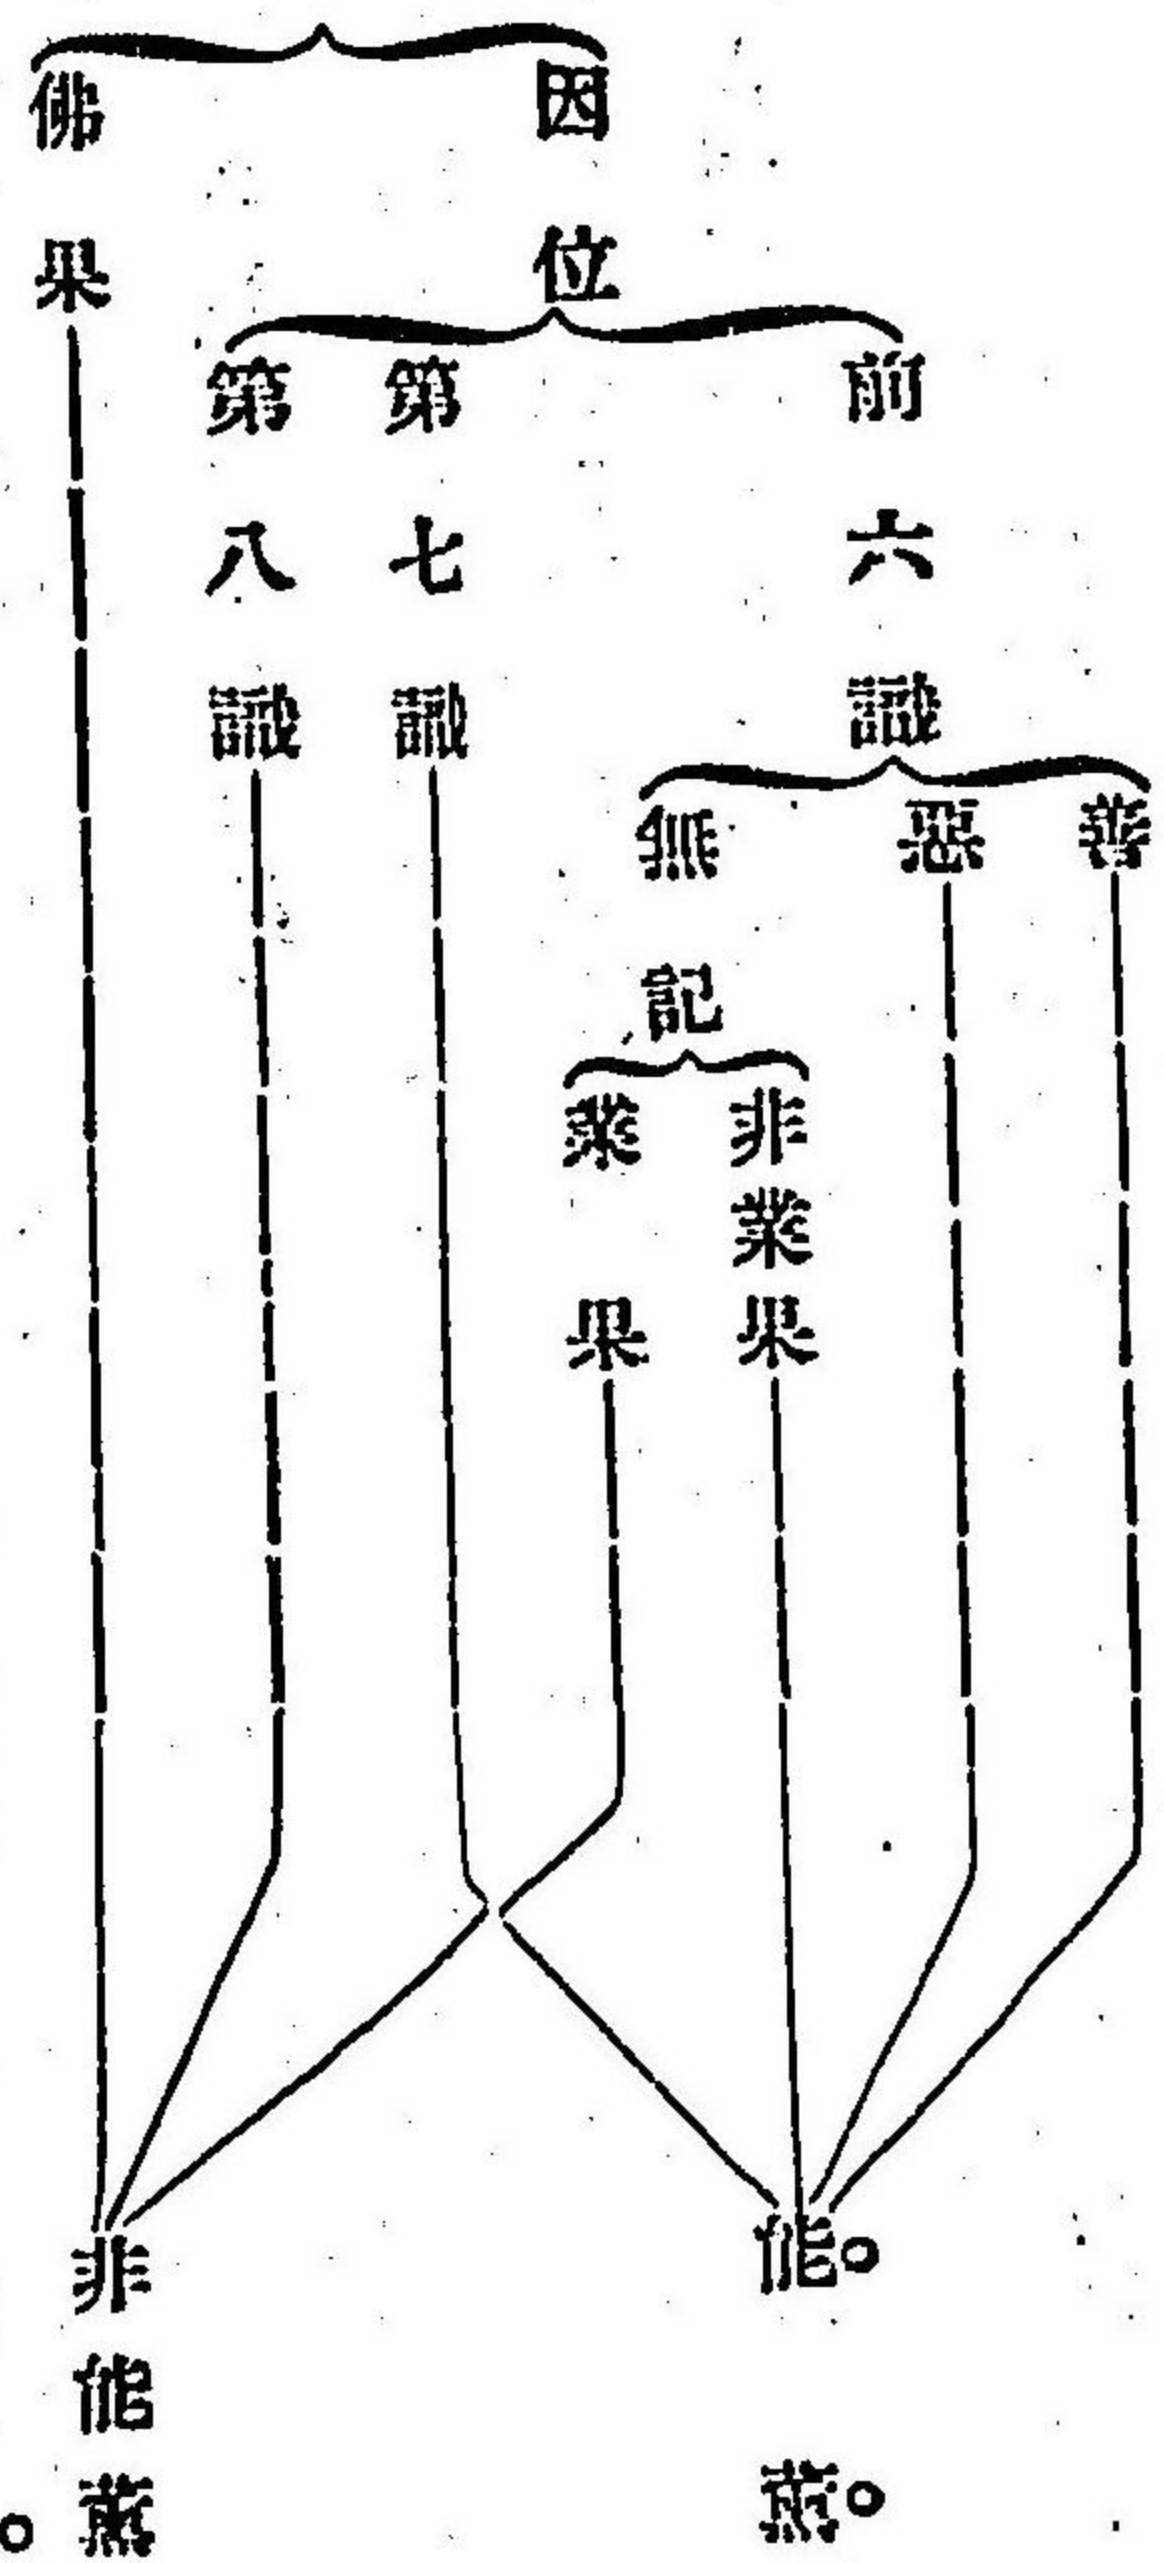 因位
前六識
善
惡
無記
非業果
業果
第七識
第八識
佛果
能。薰。
非能薰